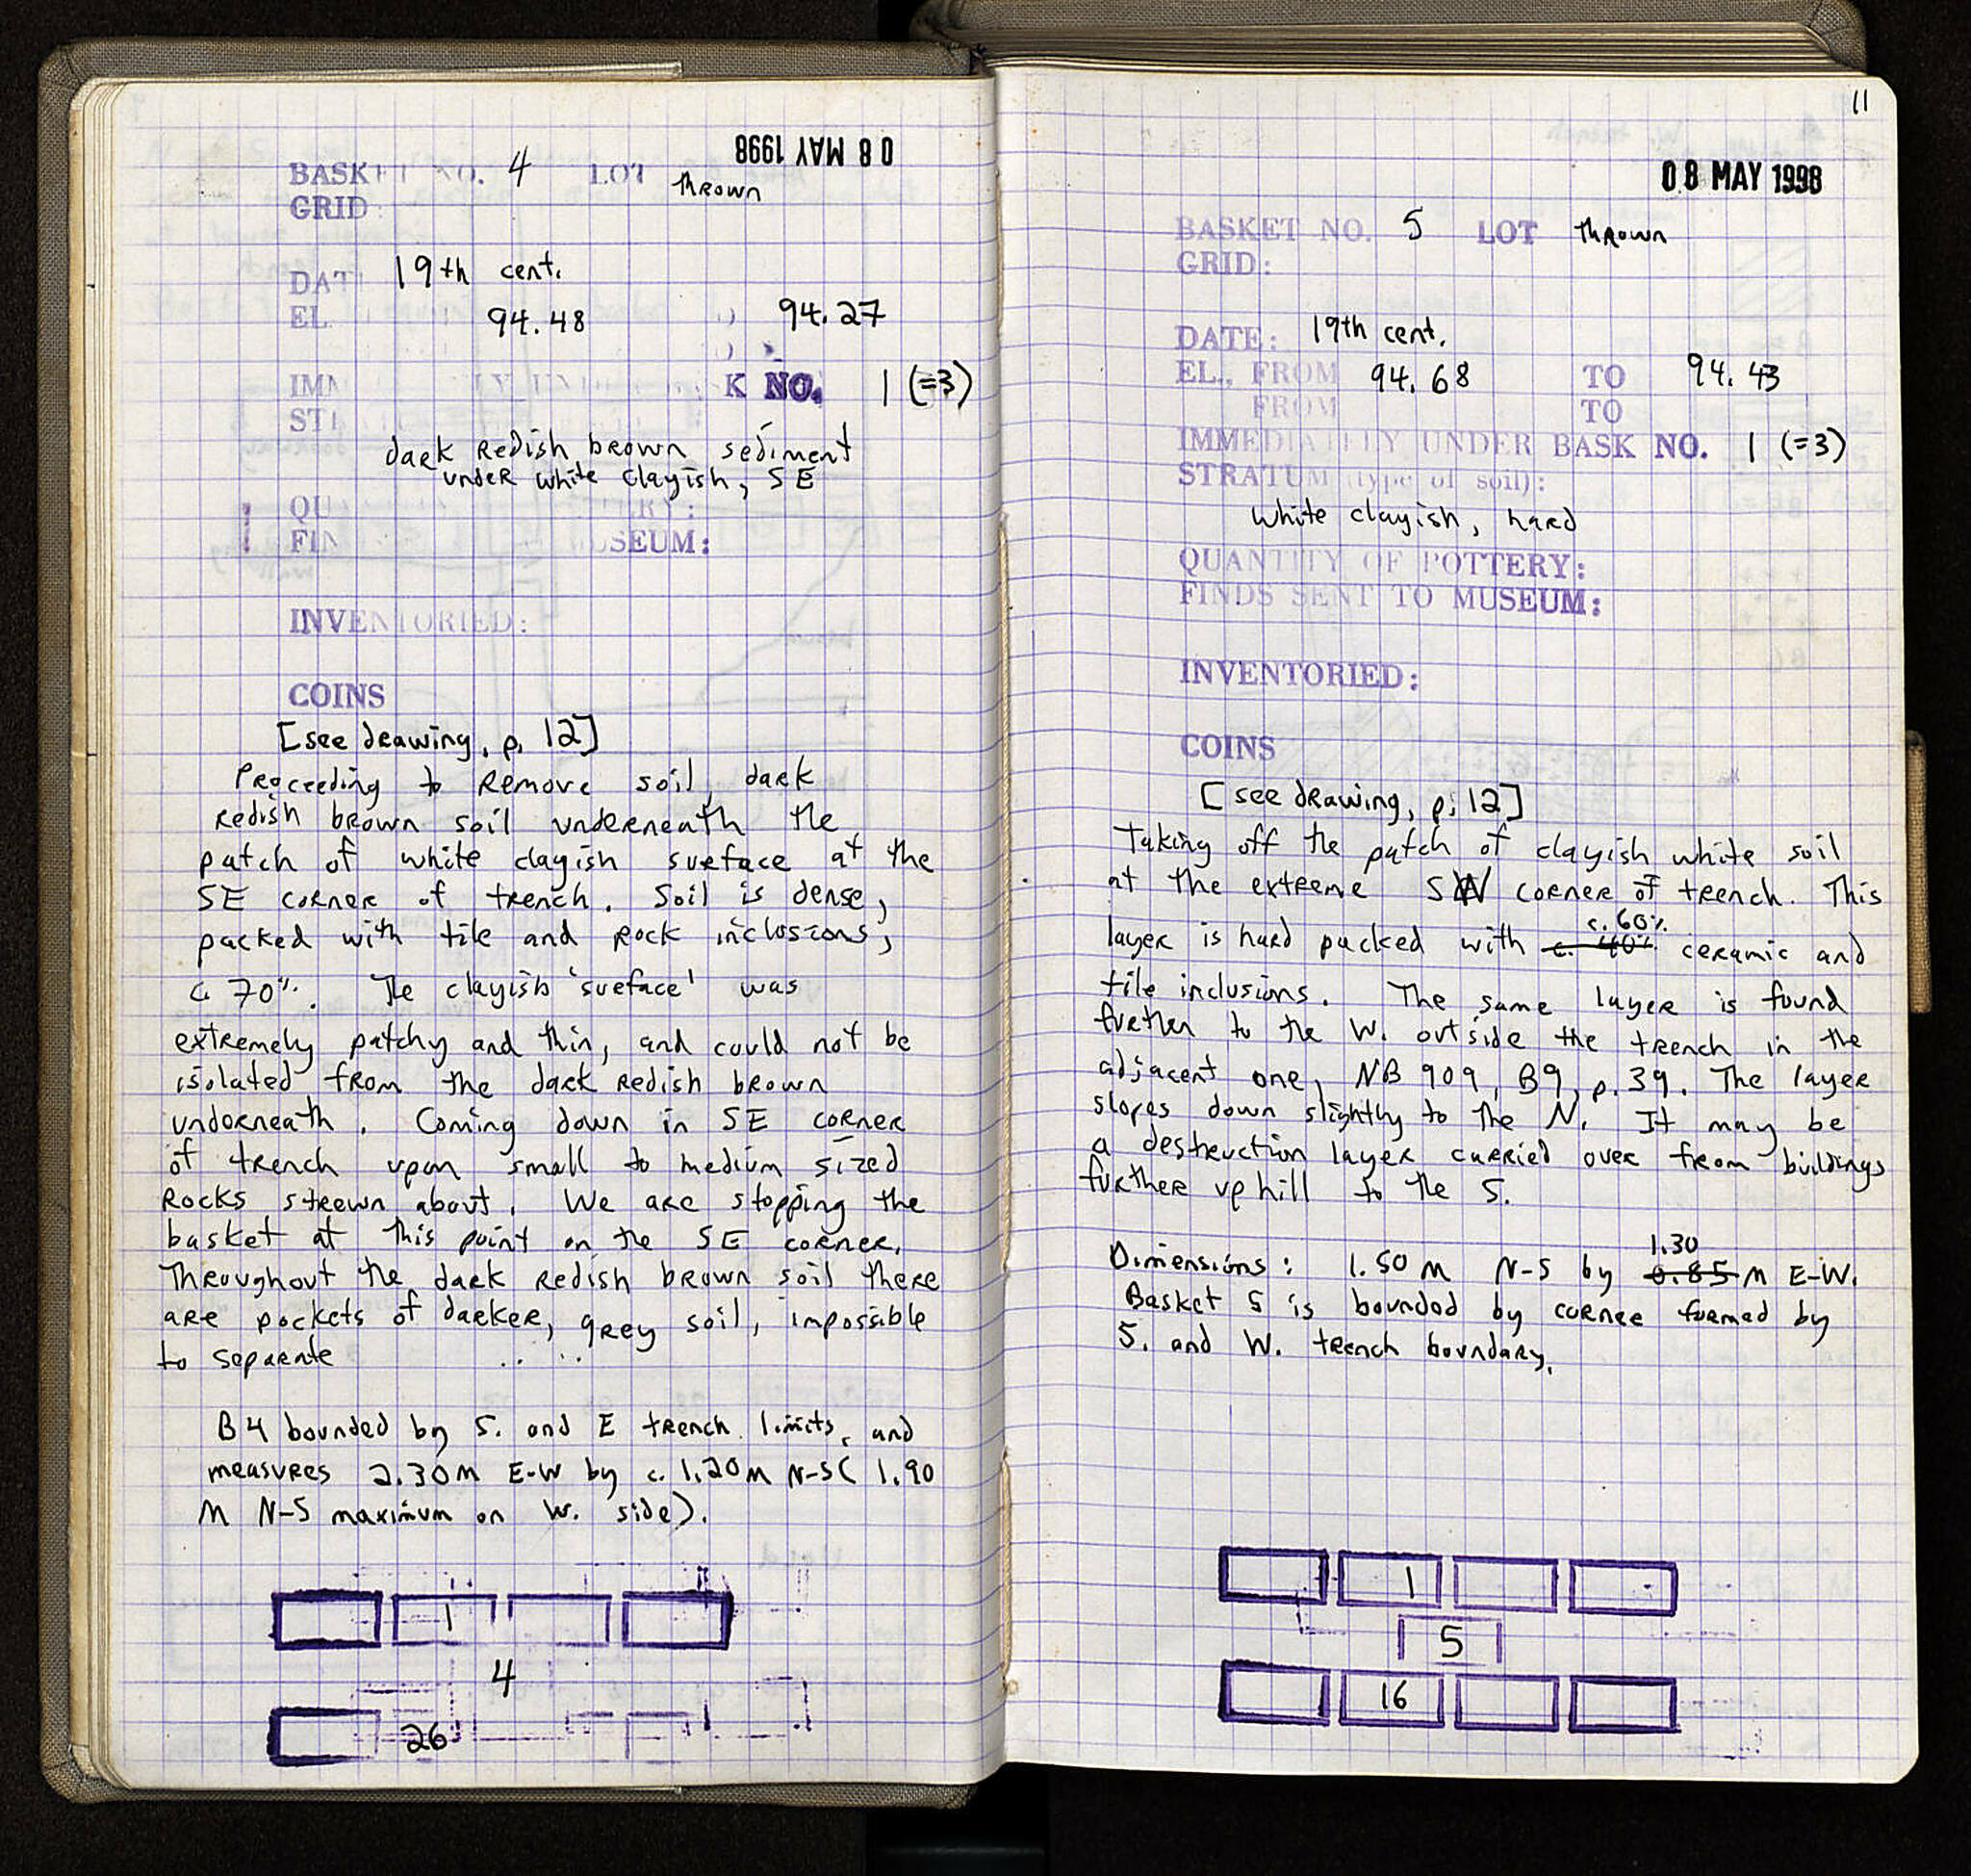 08 MAY 1998
BASKET NO. 4 LOT thrown
GRID
DAT 19th cent.
EL 94.48 94.27
IMM LY UN K NO. 1 (=3)
ST
dark redish brown sediment
under white clayish, SE
QU ERY:
FIN USEUM:
INVENTORIED:
COINS
[see drawing, p. 12]
Proceeding to remove soil, dark
redish brown soil underneath the
patch of white clayish surface at the
SE corner of trench. Soil is dense,
packed with tile and rock inclusions,
c. 70%. The clayish 'surface' was
extremely patchy and thin, and could not be
isolated from the dark redish brown
underneath. Coming down in SE corner
of trench upon small to medium sized
rocks strewn about. We are stopping the
basket at this point on the SE corner.
Throughout the dark redish brown soil there
are pockets of darker, grey soil, impossible
to separate
B4 bounded by S. and E trench limits, and
measures 2.30m E-W by c. 1.20m N-S (1.90
m N-S maximum on W. side).
1
4
26
11
08 MAY 1998
BASKET NO. 5 LOT thrown
GRID:
DATE: 19th cent.
EL., FROM 94.68 TO 94.43
FROM TO
IMMEDIATELY UNDER BASK NO. 1 (=3)
STRATUM (type of soil):
white clayish, hard
QUANTITY OF POTTERY:
FINDS SENT TO MUSEUM:
INVENTORIED:
COINS
[see drawing, p. 12]
Taking off the patch of clayish white soil
at the extreme SW corner of trench. This
c. 60%
layer is hard packed with c. 40% ceramic and
tile inclusions. The same layer is found
further to the W. outside the trench in the
adjacent one, NB 909, B9, p. 39. The layer
slopes down slightly to the N. It may be
a destruction layer carried over from buildings
further up hill to the S.
1.30
Dimensions: 1.50 m N-S by 0.85 m E-W.
Basket 5 is bounded by corner formed by
S. and W. trench boundary.
1
5
16